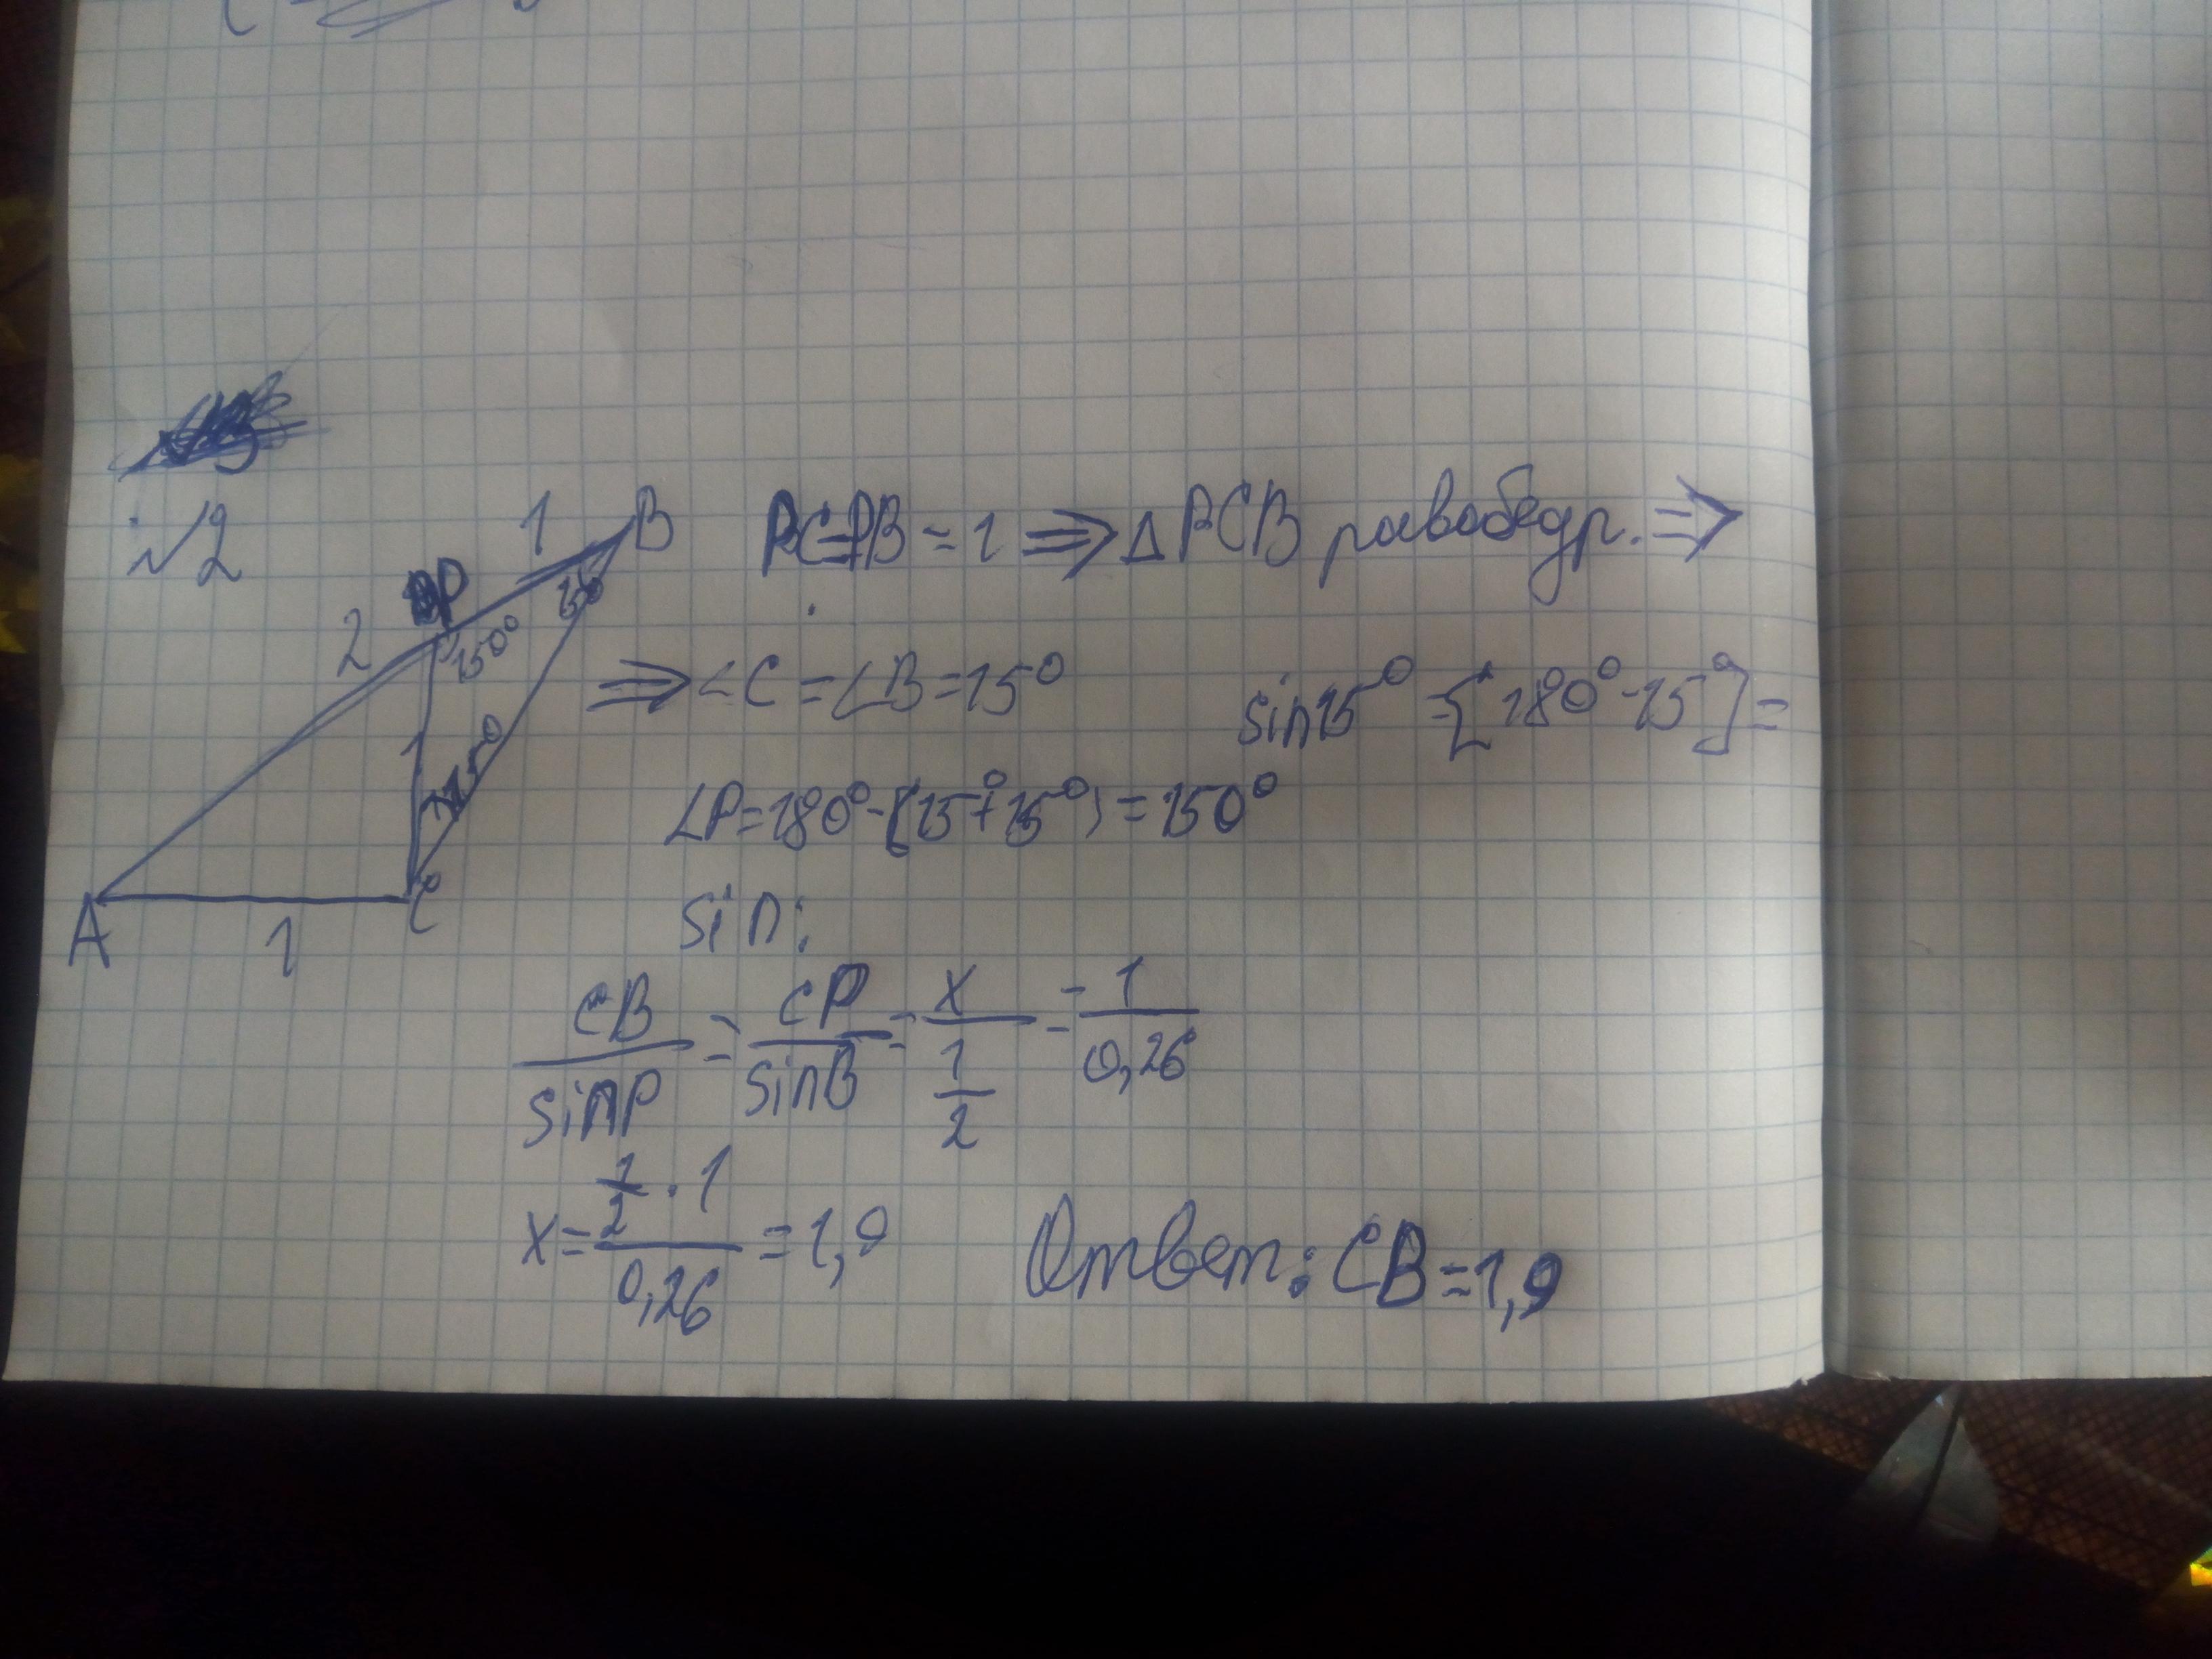 √2
A 2 P 1 B 15° 150° 1 C 1
PC=PB=1 ⇒ ΔPCB равобедр. ⇒
⇒ ∠C=∠B=15°
sin15°=[180°-15°]=
∠P=180°-(15°+15°)=150°
sin:
CB/sinP = CP/sinB = x/(1/2) = 1/0,26
x = (1/2 · 1)/0,26 = 1,9
Ответ: CB=1,9